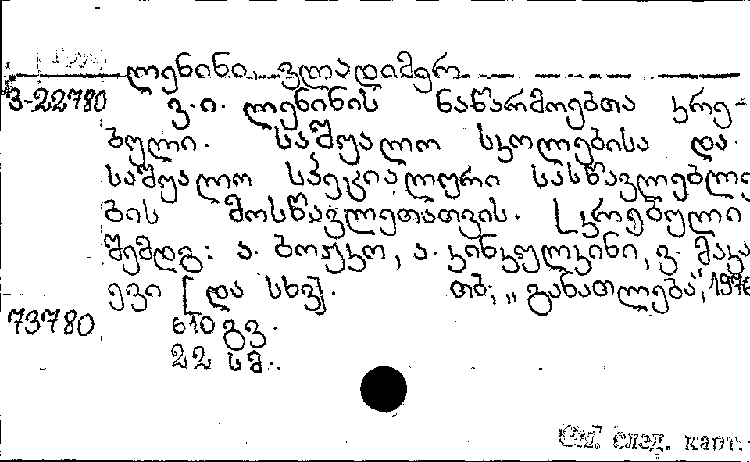 ლენინი, ვლადიმერ
3-22780 ვ.ი. ლენინის ნაწარმოებთა კრე-
ბული. საშუალო სკოლებისა და
საშუალო სპეციალური სასწავლებლე
ბის მოსწავლეთათვის. [კრებული
შემდგ: ა. ბოიკო, ა. კინკულკინი, ვ. მაკა
ევი [და სხვ]. თბ., „განათლება", 1976
73780 610 გვ.
22 სმ.
См. след. карт.